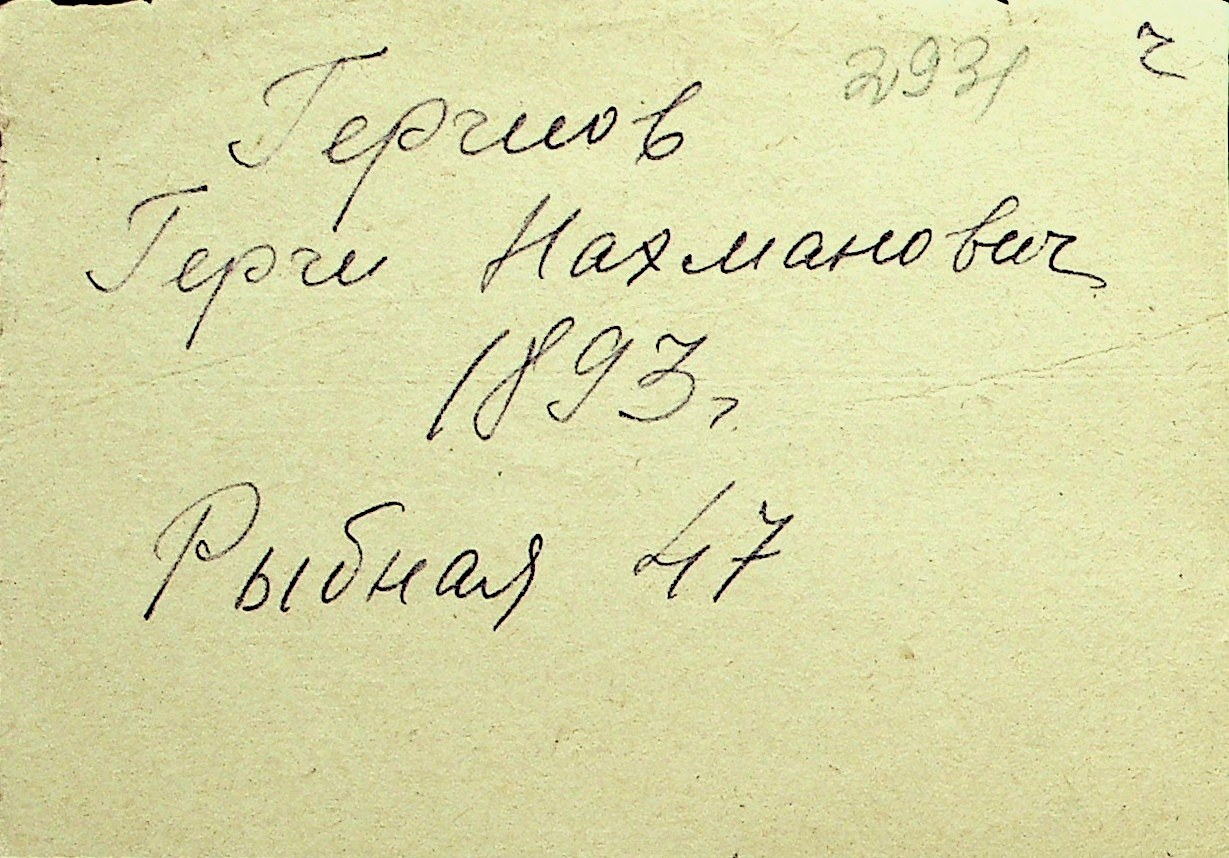 2931
Герчиов
Герчи Нахманович
1893 г
Рыбная 47